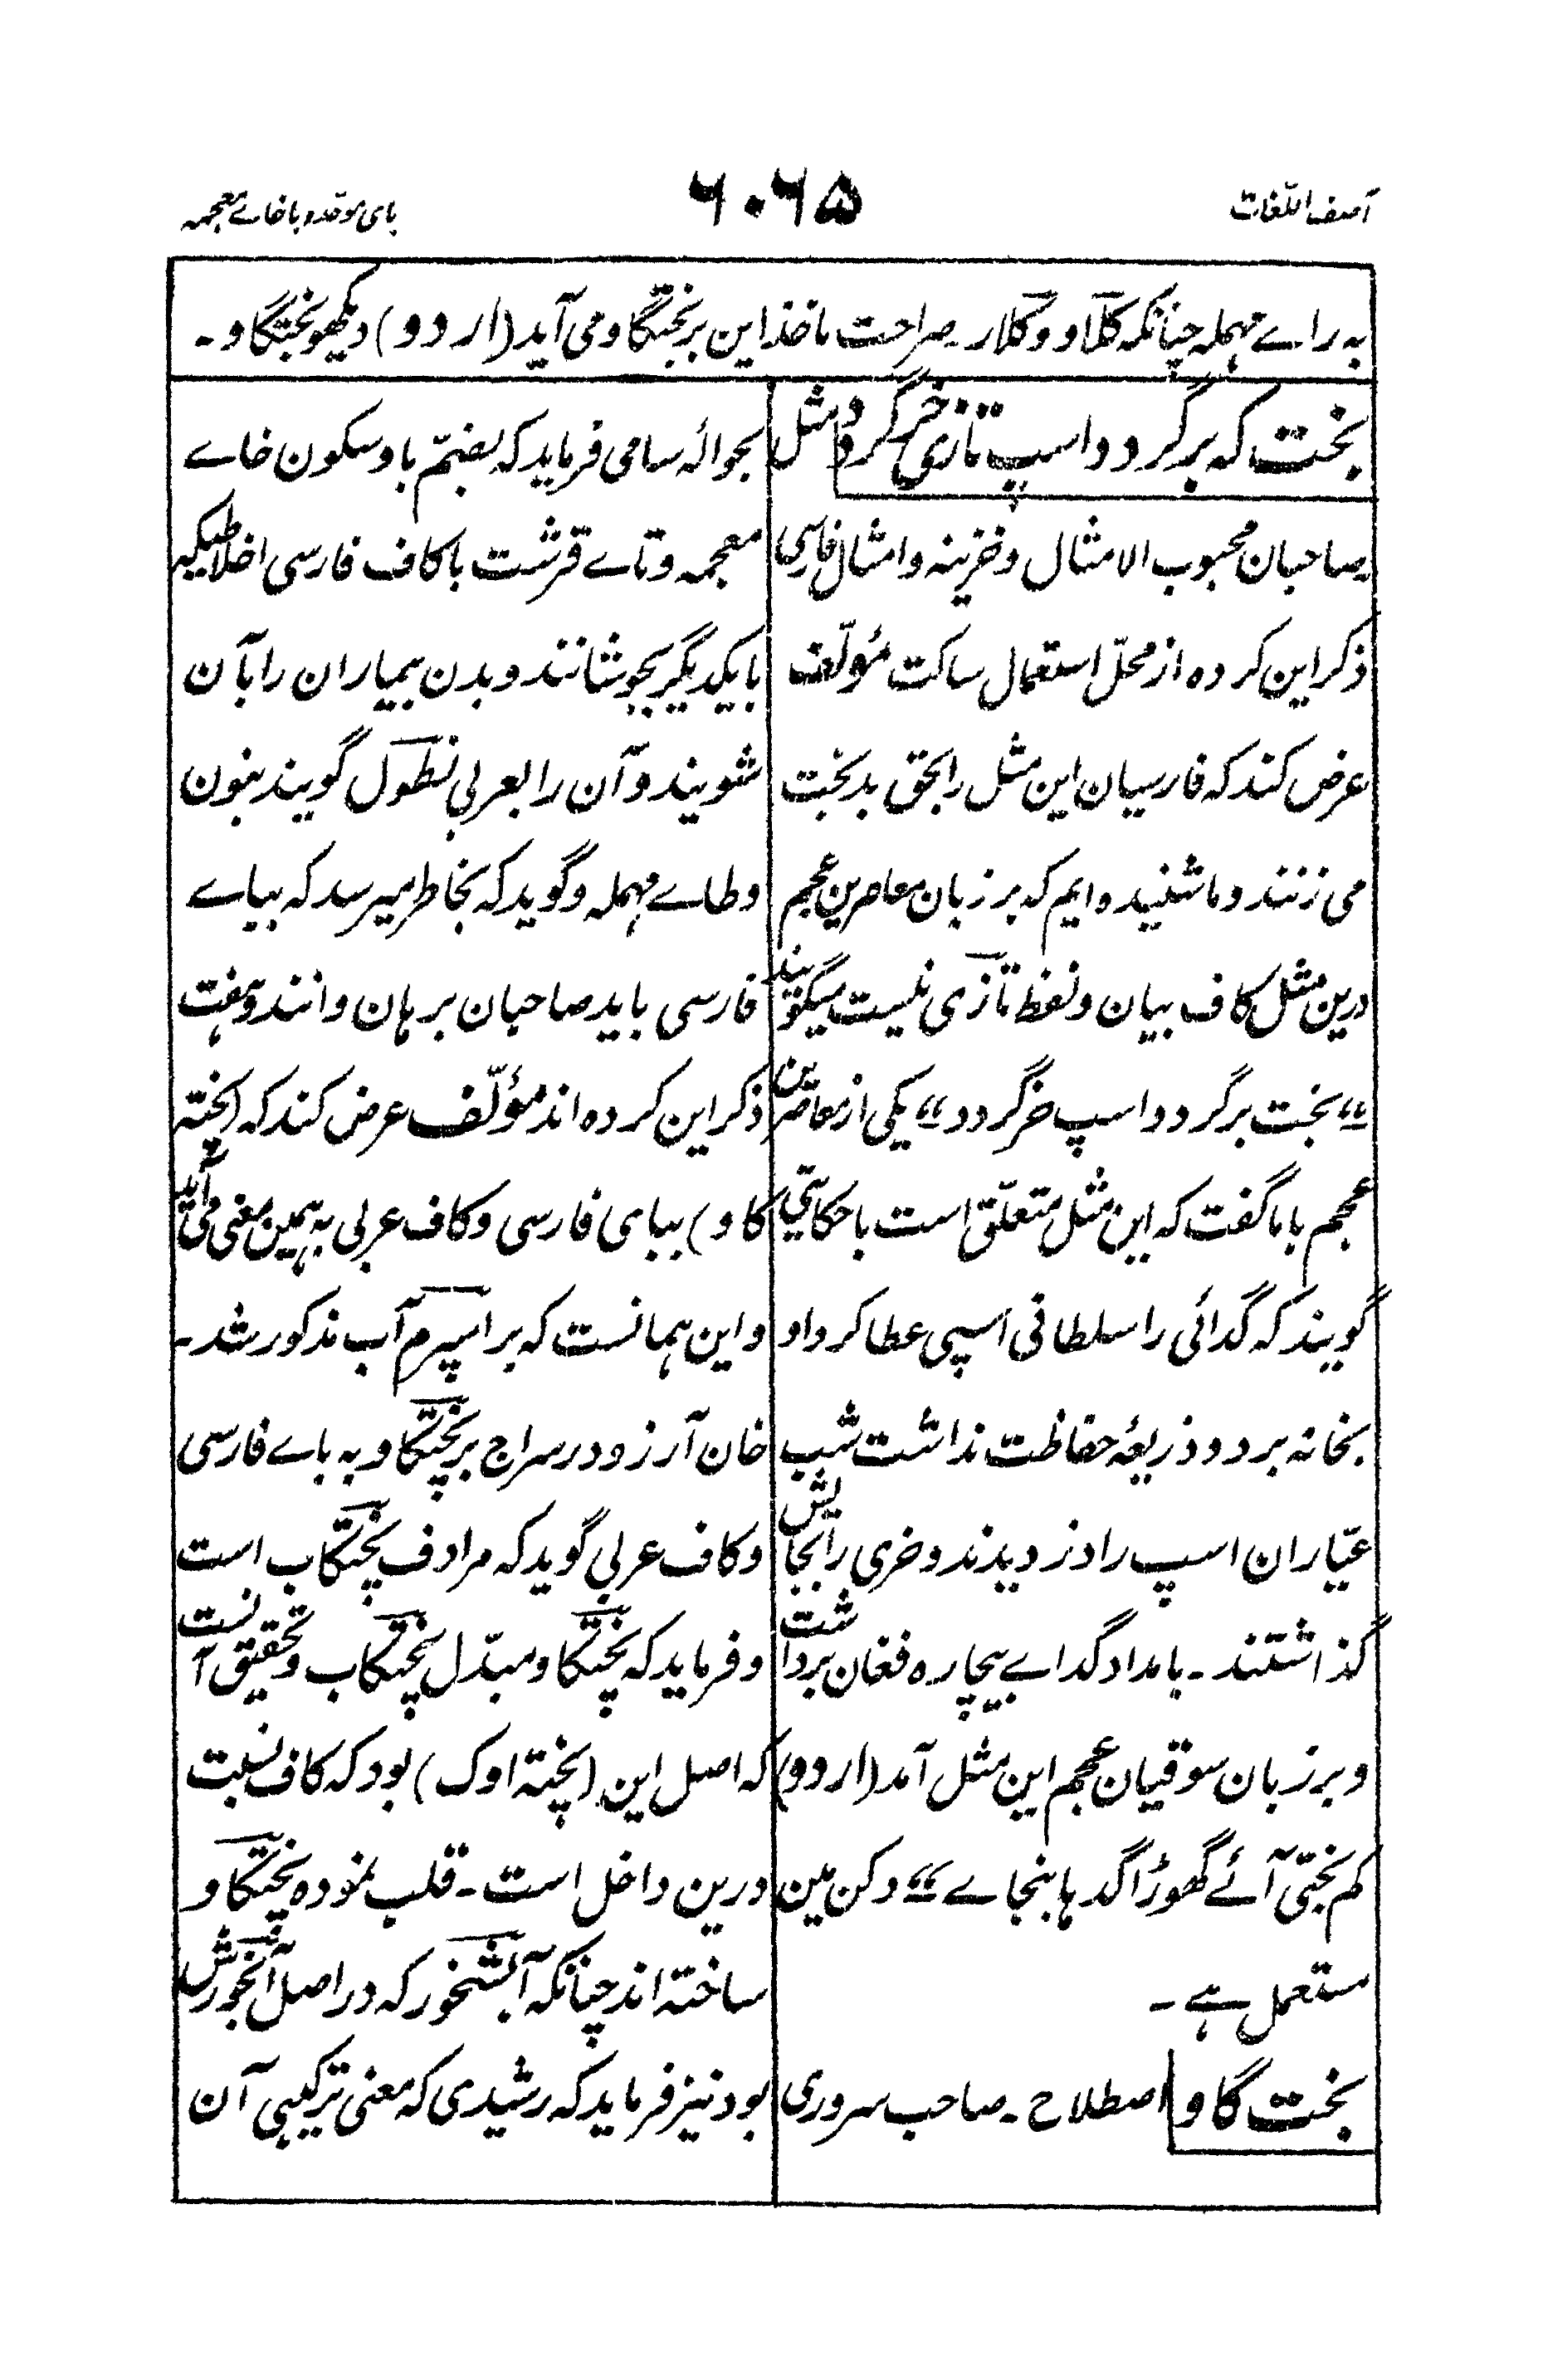 آصف اللغات
۶۰۶۵
بای موحّده با خاے معجمہ
بہ راے مہملہ چنانکہ کلاو و کلار۔ صراحت ماخذ این بر بختگاو می آید (اردو) دیکھو بختگاو۔
بخت کہ برگردد اسپ تازی خر گردد مثل
صاحبان محبوب الامثال و خزینہ و امثال فارسی
ذکر این کردہ از محلّ استعمال ساکت مؤلّف
عرض کند کہ فارسیان این مثل را بحق بدبخت
می زنند و ما شنیدہ ایم کہ بر زبان معاصرین عجم
درین مثل کاف بیان و لفظ تازی نیست میگویند
“بخت برگردد اسپ خر گردد“ یکی از معاصرین
عجم با ما گفت کہ این مثل متعلّق است با حکایتی
گویند کہ گدائی را سلطانی اسپی عطا کرد او
بخانہ برد و ذریعۂ حفاظت نداشت شب
عیّاران اسپ را دزدیدند و خری را بجایش
گذاشتند۔ بامداد گداے بیچارہ فغان برداشت
و بر زبان سوقیان عجم این مثل آمد (اردو)
کم بختی آئے گھوڑا گدہا بنجاے “ دکن مین
مستعمل ہے۔
بخت گاو اصطلاح۔ صاحب سروری
بحوالہ سامی فرماید کہ بضمّ با و سکون خاے
معجمہ و تاے قرشت با کاف فارسی اخلاطیکہ
با یکدیگر بجوشانند و بدن بیماران را بآن
شویند و آن را بعربی نطول گویند بنون
و طاے مہملہ و گوید کہ بخاطر میرسد کہ بباے
فارسی باید صاحبان برہان و انند و ہفت
ذکر این کردہ اند مؤلّف عرض کند کہ (پختہ
کاو) ببای فارسی و کاف عربی بہ ہمین معنی می آید
و این ہمانست کہ بر اسپرم آب مذکور شد۔
خان آرزو در سراج بر پختکاو بہ باے فارسی
و کاف عربی گوید کہ مرادف پختکاب است
و فرماید کہ پختکاو مبدّل پختکاب و تحقیق آنست
کہ اصل این (پختہ اوک) بود کہ کاف نسبت
درین داخل است۔ قلب نمودہ پختکاو
ساختہ اند چنانکہ آبشخور کہ در اصل آبخورش
بود نیز فرماید کہ رشیدی کہ معنی ترکیبی آن